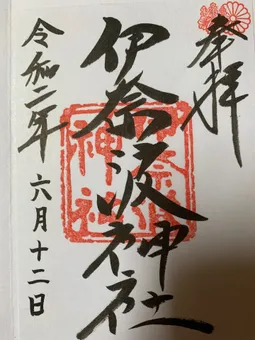 奉拝
伊奈波神社
令和二年 六月十二日
伊奈波神社